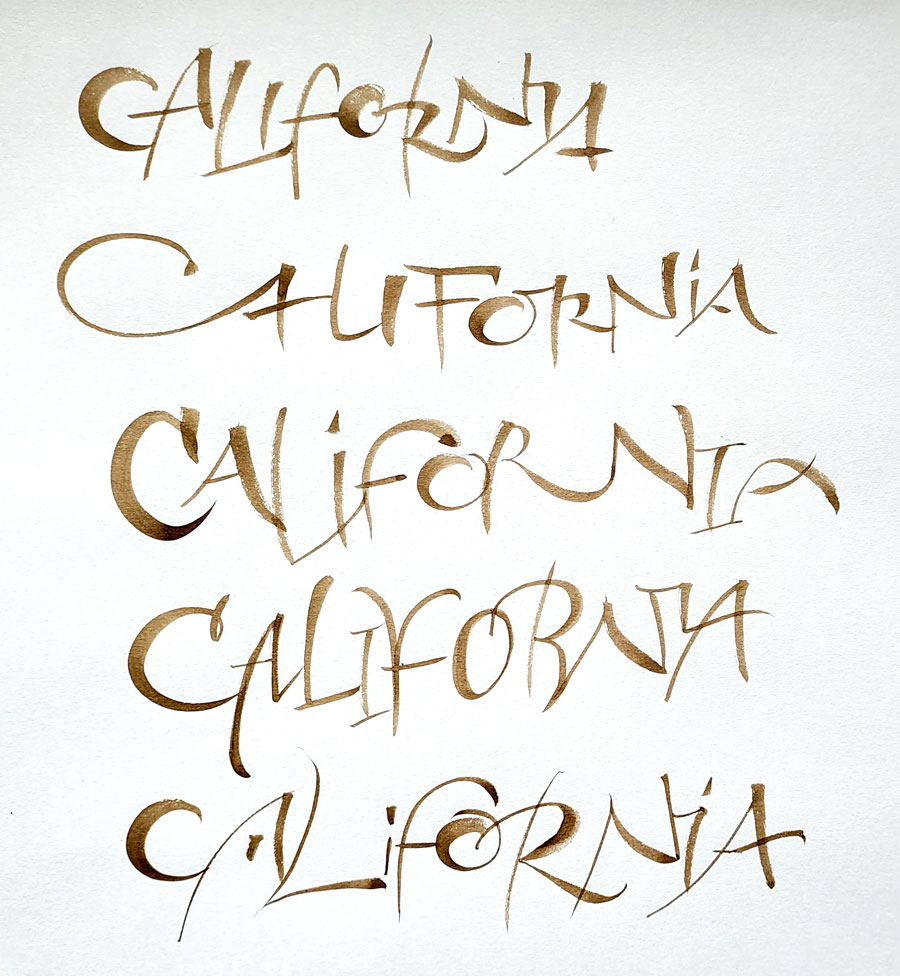 CALIFORNIA
CALIFORNIA
CALiFORNIA
CALIFORNIA
CALiFORNiA